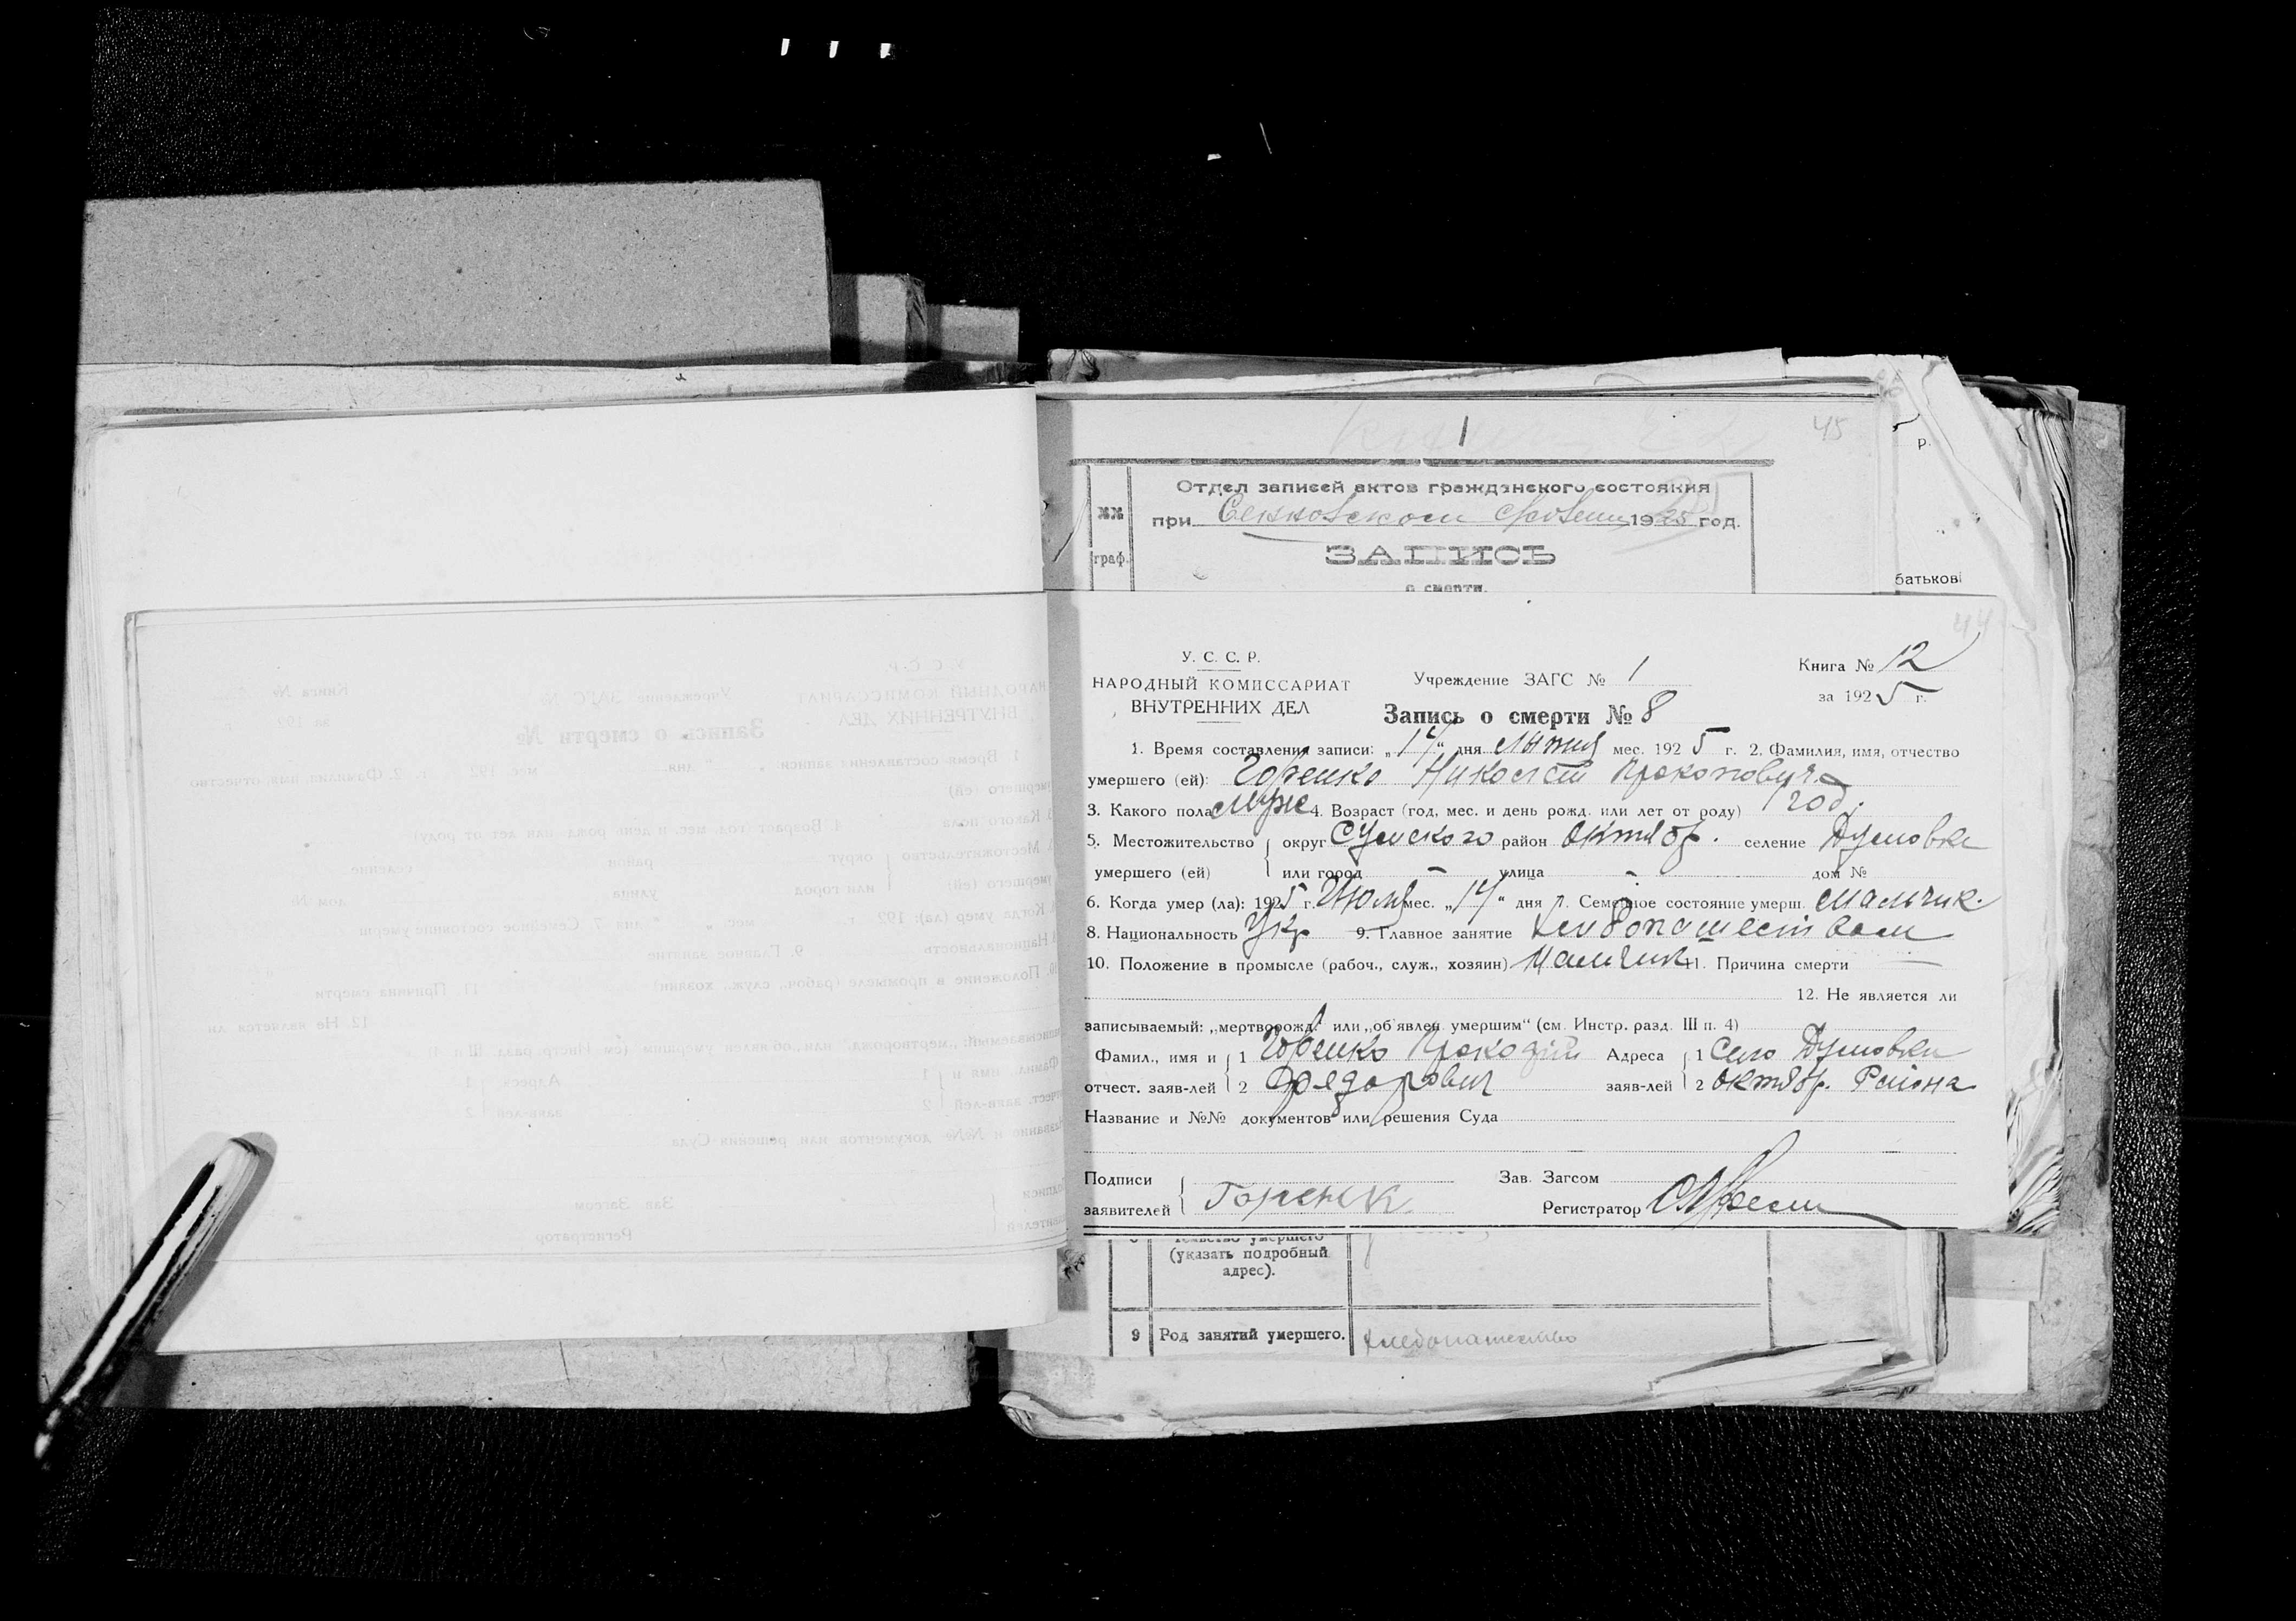 1
45
Отдел записей актов гражданского состояния
при 1925 год.
№№
граф.
ЗАПИСЬ
о смерти.
р.
батькові
44
У. С. С. Р.
НАРОДНЫЙ КОМИССАРИАТ
ВНУТРЕННИХ ДЕЛ
Учреждение ЗАГС № 1
Книга № 12
за 1925 г.
Запись о смерти № 8
1. Время составления записи: „14“ дня мес. 1925 г. 2. Фамилия, имя, отчество
умершего (ей): Горенко Николай Прокопович
3. Какого пола муж 4. Возраст (год, мес. и день рожд. или лет от роду) 1 год.
5. Местожительство округ Сумского район Октябр. селение
умершего (ей) или город - улица - дом №
6. Когда умер (ла): 1925 г. Июля мес. „14“ дня 7. Семейное состояние умерш. мальчик.
8. Национальность Укр 9. Главное занятие
10. Положение в промысле (рабоч., служ., хозяин) Мальчик 11. Причина смерти —
12. Не является ли
записываемый: „мертворожд.“ или „об'явлен. умершим“ (см. Инстр. разд. III п. 4)
Фамил., имя и 1 Горенко Адреса 1 Село
отчест. заяв-лей 2 заяв-лей 2 Октябр. Района
Название и №№ документов или решения Суда
Подписи
заявителей Горенк
Зав. Загсом
Регистратор
(указать подробный
адрес).
9 Род занятий умершего. хлебопашество